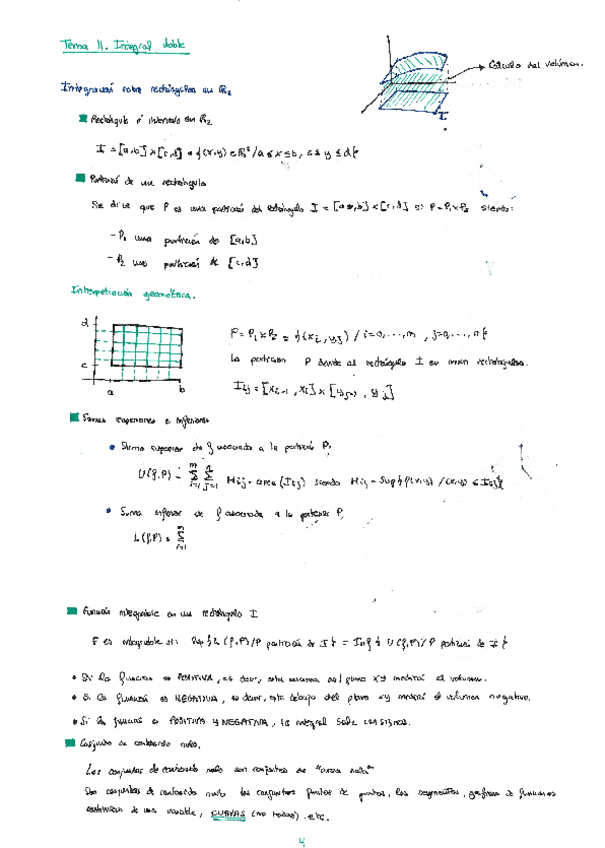 Tema 11. Integral doble
Cálculo del volumen.
Integración sobre rectángulos en R2
Rectángulo o intervalo en R2
I = [a,b] x [c,d] = {(x,y) ∈ R² / a ≤ x ≤ b, c ≤ y ≤ d}
Partición de un rectángulo
Se dice que P es una partición del rectángulo I = [a,b] x [c,d] si P = P1 x P2 siendo:
- P1 una partición de [a,b]
- P2 una partición de [c,d]
Interpretación geométrica.
d
c
a b
P = P1 x P2 = {(xi, yj) / i=0,...,n, j=0,...,n}
La partición P divide al rectángulo I en rectángulos.
Iij = [xi-1, xi] x [yj-1, yj]
Sumas superiores e inferiores
Suma superior de f asociada a la partición P,
U(f,P) = Σ Σ Mij · area (Iij) siendo Mij = Sup{f(x,y) / (x,y) ∈ Iij}
Suma inferior de f asociada a la partición P,
L(f,P) = Σ
Función integrable en un rectángulo I
F es integrable si: Sup{L(f,P)/P partición de I} = Inf{U(f,P)/P partición de I}
Si la función es POSITIVA, es decir, está encima del plano xy medirá el volumen.
Si la función es NEGATIVA, es decir, está debajo del plano xy medirá el volumen negativo.
Si la función es POSITIVA y NEGATIVA, la integral sale con signos.
Conjunto de contenido nulo.
Los conjuntos de contenido nulo son conjuntos de "área nula"
Son conjuntos de contenido nulo los conjuntos finitos de puntos, los segmentos, gráficas de funciones
continuas de una variable, CURVAS (no todas). etc.
4